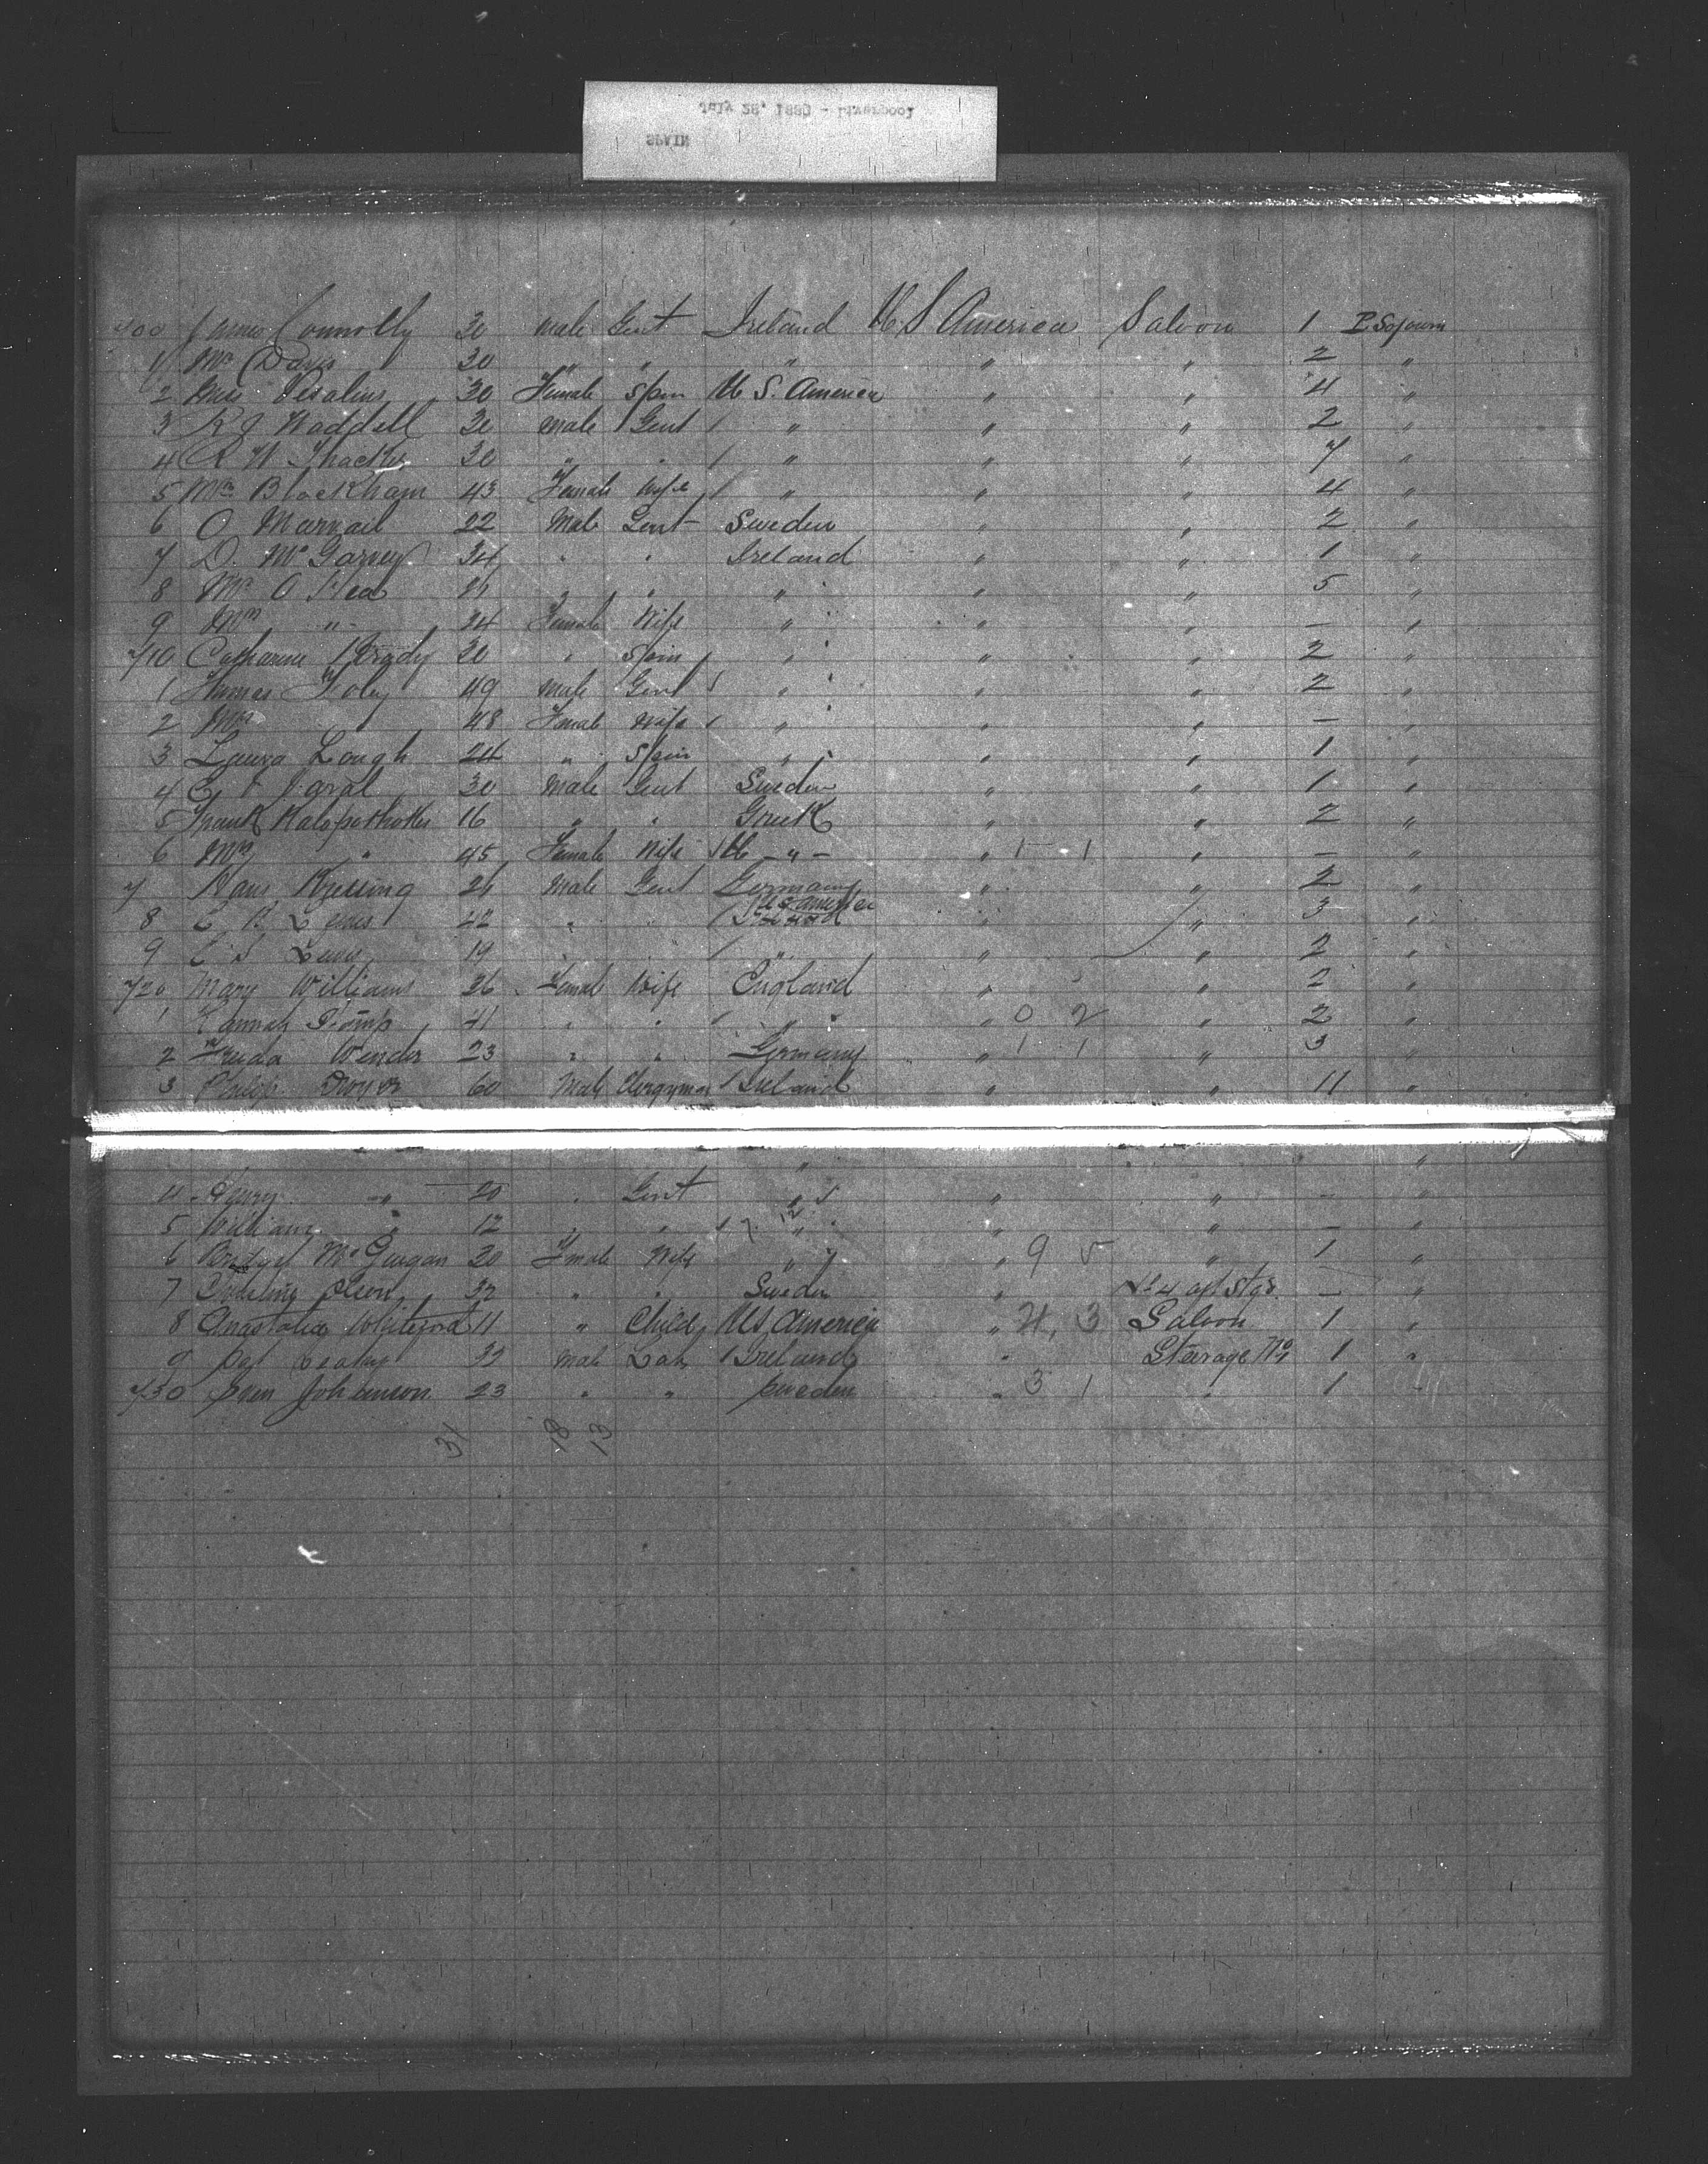 SPAIN
July 28, 1890 - Liverpool
700 James Connolly 30 male Gent Ireland U S America Saloon 1 P Sojourn
1 Mr Davis 30 " " " " " 2 "
2 Miss 30 Female Spin U S. America " " 4 "
3 R J Waddell 30 male Gent / " " " 2 "
4 R W Thacker 30 " " / " " " 7 "
5 Mrs Blackham 43 Female Wife / " " " 4 "
6 O 22 Male Gent Sweden " " 2 "
7 D. McGarvey 34 " " Ireland " " 1 "
8 Mr O Hea " " " " " 5 "
9 Mrs " - 24 Female Wife " " " — "
710 Catharine Brady 30 " Spin " " " 2 "
1 Foley 49 male Gent / " " " 2 "
2 Mrs 48 Female Wife / " " " — "
3 Laura Lough 24 " Spin " " " 1 "
4 30 male Gent Sweden " " 1 "
5 Frank Kalopothakes 16 " " Greek " " 2 "
6 Mrs " 45 Female Wife / U - " - " 1 1 " — "
7 Hans 26 Male Gent Germany " " 2 "
8 C B Lewis 42 " / U S America Ireland " " 3 "
9 C S Lewis 19 " " / " " " 2 "
720 Mary Williams 26 Female Wife England " " 2 "
1 Hannah 41 " " / " " 0 2 " 2 "
2 Freida Wender 23 " " Germany " 1 1 " 3 "
3 Philip Dwyer 60 Male Clergyman / Ireland " " 11 "
4 Henry " 20 " Gent " " " — "
5 William " 12 " " / 7 12 " " " — "
6 Bridget McGurgan 20 Female Wife " " 9 5 " 1 "
7 Olson 32 " " Sweden " No 4 aft Stge. — "
8 Anastatia Whiteford 11 " Child U S America " 4, 3 Saloon 1 "
9 Pat Leahy 39 Male Lab / Ireland " Steerage No 1 "
730 Sven Johanson 23 " " Sweden " 3 1 " 1 "
31 18 13